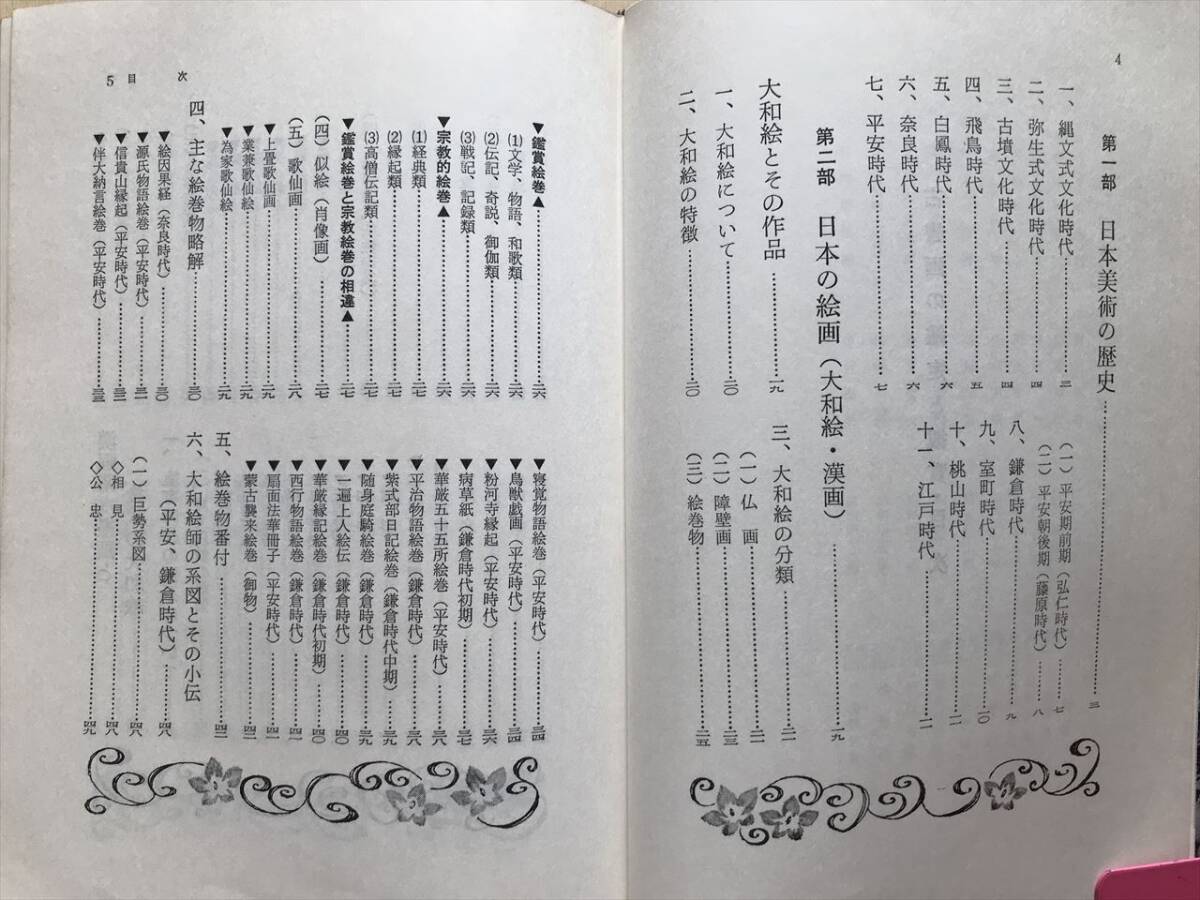 4
第一部　日本美術の歴史……三
一、縄文式文化時代……三
二、弥生式文化時代……四
三、古墳文化時代……四
四、飛鳥時代……五
五、白鳳時代……六
六、奈良時代……六
七、平安時代……七
（一）平安期前期（弘仁時代）……七
（二）平安朝後期（藤原時代）……八
八、鎌倉時代……九
九、室町時代……一〇
十、桃山時代……一一
十一、江戸時代……一一
第二部　日本の絵画（大和絵・漢画）……一九
大和絵とその作品……一九
一、大和絵について……二〇
二、大和絵の特徴……二〇
三、大和絵の分類……二一
（一）仏　画……二一
（二）障壁画……二三
（三）絵巻物……二五
5　目　次
▼鑑賞絵巻▲……二六
(1)文学、物語、和歌類……二六
(2)伝記、奇説、御伽類……二六
(3)戦記、記録類……二六
▼宗教的絵巻▲……二六
(1)経典類……二七
(2)縁起類……二七
(3)高僧伝記類……二七
▼鑑賞絵巻と宗教絵巻の相違▲……二七
（四）似絵（肖像画）……二七
（五）歌仙画……二八
▼上畳歌仙画……二九
▼業兼歌仙絵……二九
▼為家歌仙絵……二九
四、主な絵巻物略解……三〇
▼絵因果経（奈良時代）……三〇
▼源氏物語絵巻（平安時代）……三一
▼信貴山縁起（平安時代）……三二
▼伴大納言絵巻（平安時代）……三三
▼寝覚物語絵巻（平安時代）……三四
▼鳥獣戯画（平安時代）……三四
▼粉河寺縁起（平安時代）……三六
▼病草紙（鎌倉時代初期）……三七
▼華厳五十五所絵巻（平安時代）……三八
▼平治物語絵巻（鎌倉時代）……三八
▼紫式部日記絵巻（鎌倉時代中期）……三九
▼随身庭騎絵巻（鎌倉時代）……三九
▼一遍上人絵伝（鎌倉時代）……四〇
▼華厳縁記絵巻（鎌倉時代初期）……四〇
▼西行物語絵巻（鎌倉時代）……四一
▼扇面法華冊子（平安時代）……四一
▼蒙古襲来絵巻（御物）……四二
五、絵巻物番付……四三
六、大和絵師の系図とその小伝
（平安、鎌倉時代）……四八
（一）巨勢系図……四八
◇相　見……四八
◇公　忠……四九